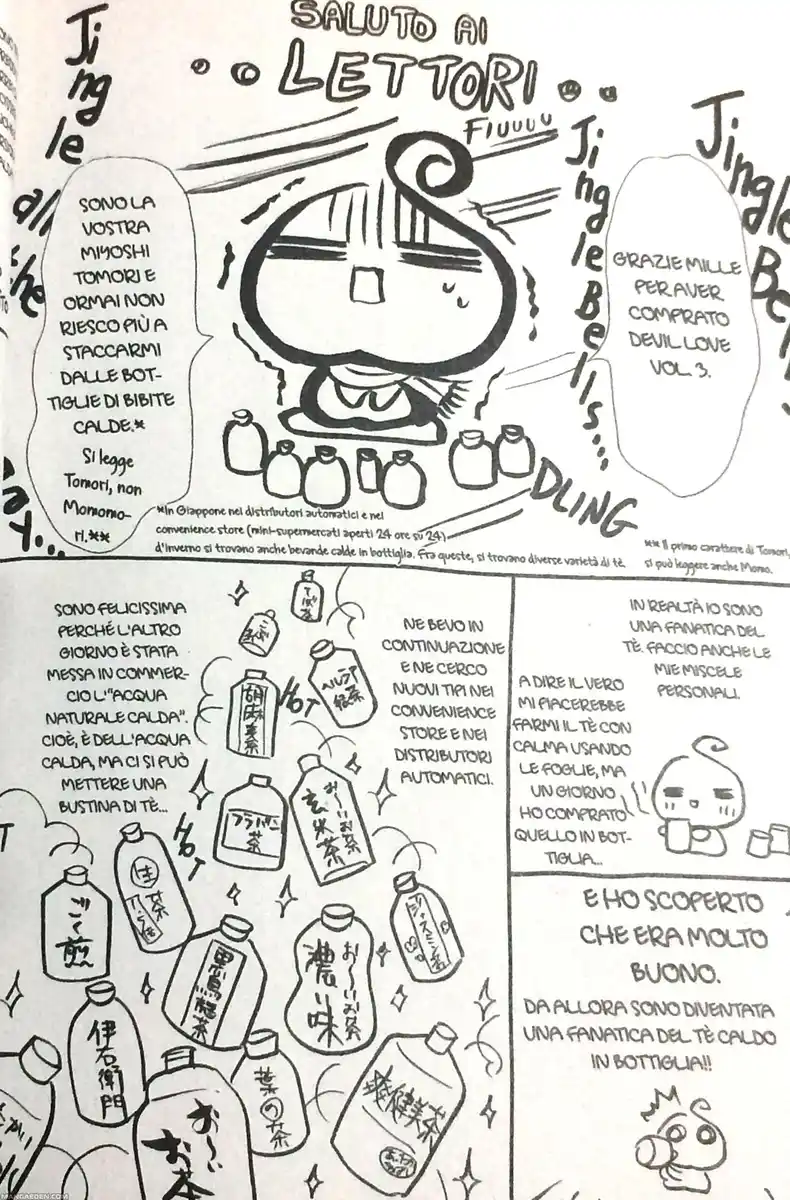 SALUTO AI
LETTORI
Jingle
all the
Jingle Bells...
Jingle
FIUUUU
GRAZIE MILLE
PER AVER
COMPRATO
DEVIL LOVE
VOL. 3.
SONO LA
VOSTRA
MIYOSHI
TOMORI E
ORMAI NON
RIESCO PIÙ A
STACCARMI
DALLE BOT-
TIGLIE DI BIBITE
CALDE.*
Si legge
Tomori, non
Momomo-
ri.**
DLING
*In Giappone nei distributori automatici e nei
convenience store (mini-supermercati aperti 24 ore su 24)
d'inverno si trovano anche bevande calde in bottiglia. Fra queste, si trovano diverse varietà di tè.
** Il primo carattere di Tomori,
si può leggere anche Momo.
IN REALTÀ IO SONO
UNA FANATICA DEL
TÈ. FACCIO ANCHE LE
MIE MISCELE
PERSONALI.
A DIRE IL VERO
MI PIACEREBBE
FARMI IL TÈ CON
CALMA USANDO
LE FOGLIE, MA
UN GIORNO
HO COMPRATO
QUELLO IN BOT-
TIGLIA...
E HO SCOPERTO
CHE ERA MOLTO
BUONO.
DA ALLORA SONO DIVENTATA
UNA FANATICA DEL TÈ CALDO
IN BOTTIGLIA!!
NE BEVO IN
CONTINUAZIONE
E NE CERCO
NUOVI TIPI NEI
CONVENIENCE
STORE E NEI
DISTRIBUTORI
AUTOMATICI.
SONO FELICISSIMA
PERCHÉ L'ALTRO
GIORNO È STATA
MESSA IN COMMER-
CIO L'"ACQUA
NATURALE CALDA".
CIOÈ, È DELL'ACQUA
CALDA, MA CI SI PUÒ
METTERE UNA
BUSTINA DI TÈ...
HOT
HOT
そば茶
ヘルシア
緑茶
胡麻麦茶
フラバン
茶
お〜いお茶
玄米茶
ジャスミン茶
ごく煎
黒烏龍茶
お〜いお茶
濃い味
伊右衛門
葉の茶
爽健美茶
お〜い
お茶
MANGAEDEN.COM